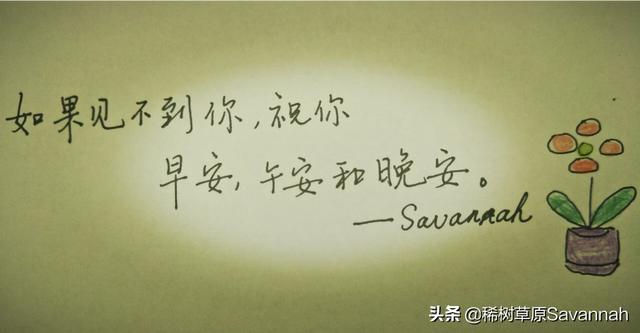 如果见不到你,祝你
早安,午安和晚安。
—Savannah
头条 @稀树草原Savannah